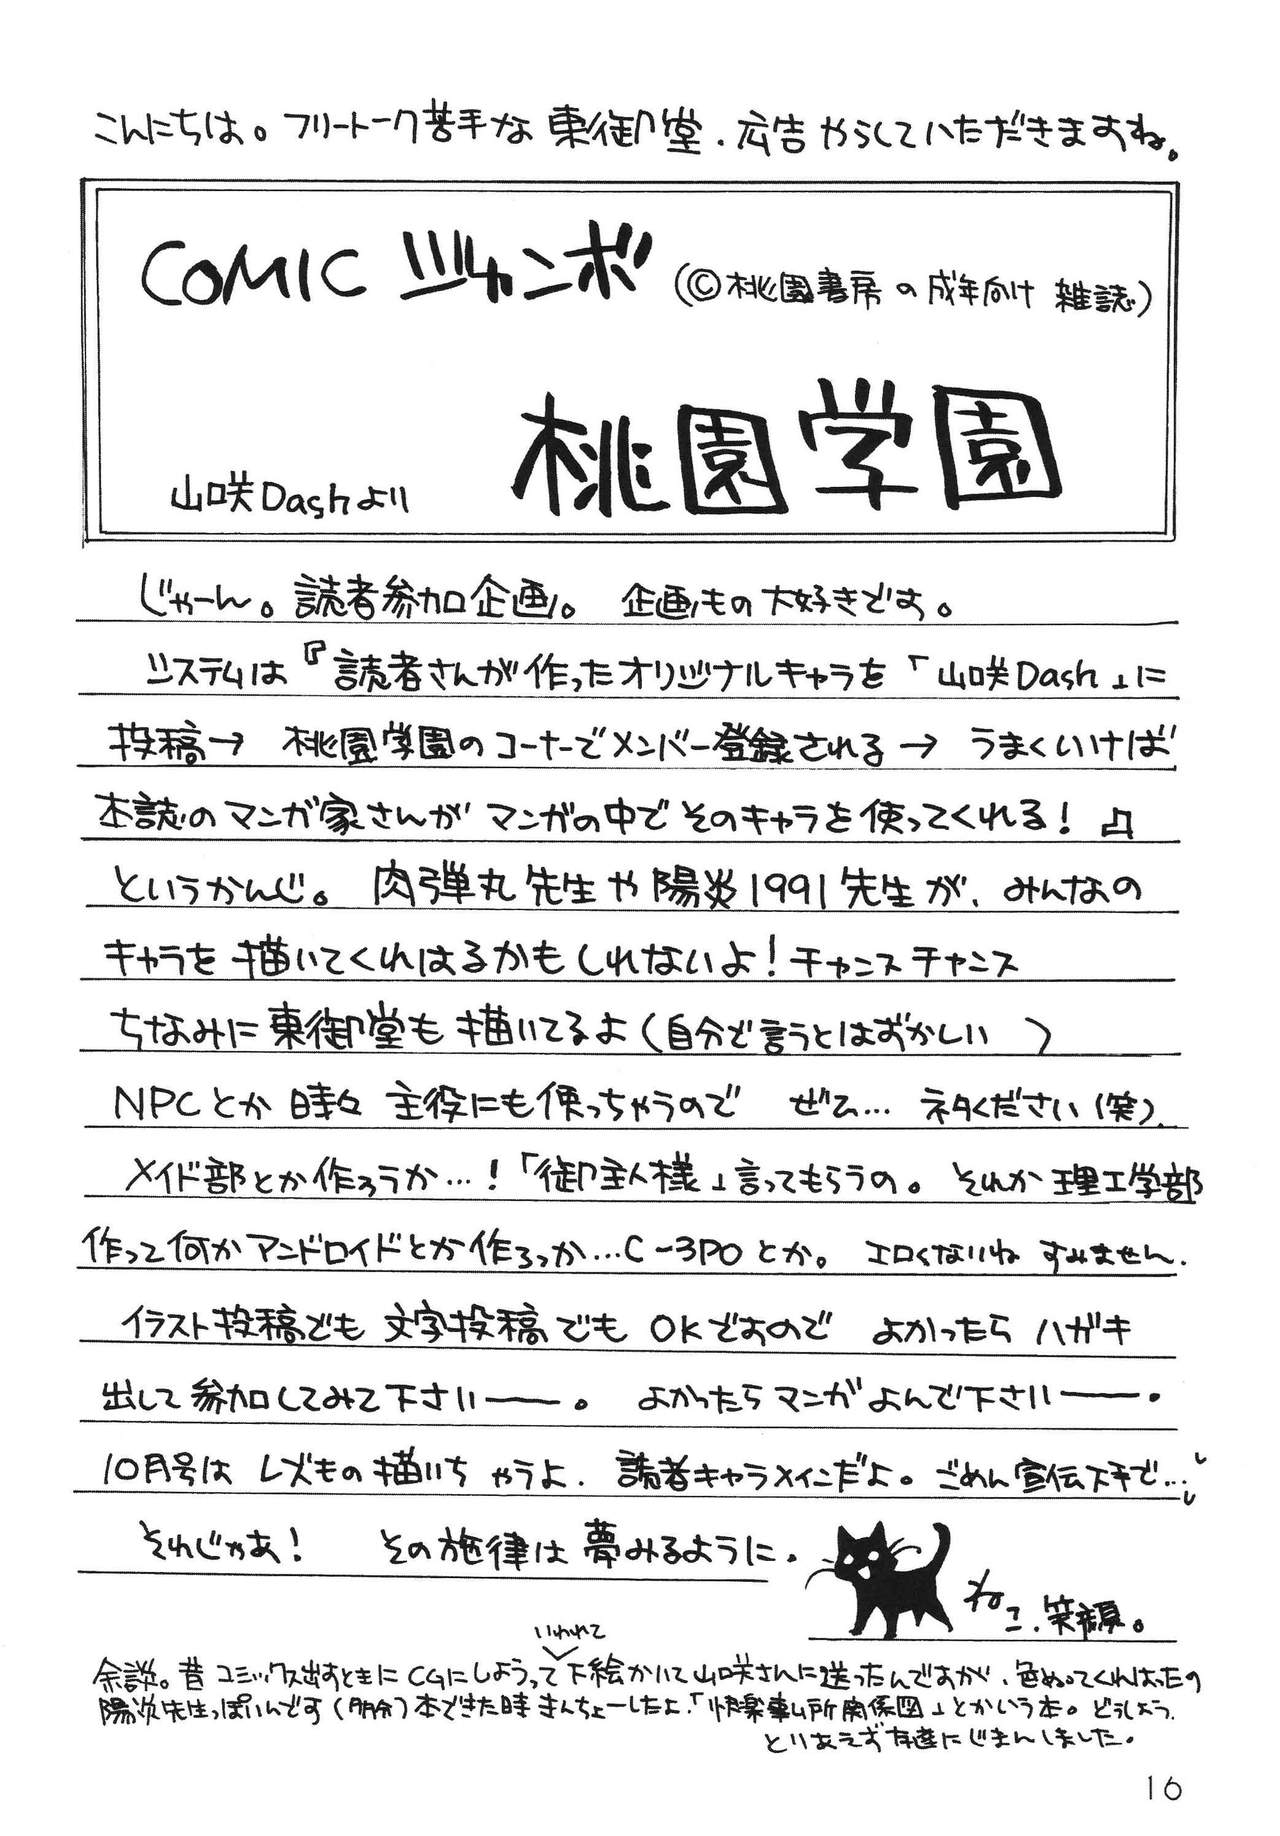 こんにちは。フリートーク苦手な東御堂、広告やらしていただきますね。
COMIC ジャンボ (©桃園書房の成年向け 雑誌)
桃園学園
山咲Dashより
じゃーん。読者参加企画。 企画もの大好きです。
システムは『読者さんが作ったオリジナルキャラを「山咲Dash」に
投稿→ 桃園学園のコーナーでメンバー登録される → うまくいけば
本誌のマンガ家さんが マンガの中でそのキャラを使ってくれる! 』
というかんじ。 肉弾丸先生や陽炎1991先生が、みんなの
キャラを描いてくれはるかもしれないよ!チャンスチャンス
ちなみに東御堂も描いてるよ(自分で言うとはずかしい )
NPCとか時々 主役にも使っちゃうので ぜひ… ネタください(笑).
メイド部とか作ろうか…!「御主人様」言ってもらうの。 それか理工学部
作って何かアンドロイドとか作ろっか…C-3POとか。 エロくないね すみません.
イラスト投稿でも 文字投稿でも OKですので よかったら ハガキ
出して参加してみて下さいー。 よかったらマンガよんで下さいー.
10月号は レズもの描いちゃうよ. 読者キャラメインだよ。ごめん宣伝下手で…
それじゃあ! その施律は夢みるように.
ねこ.笑顔。
いわれて
余談。昔コミックス出すときにCGにしようって下絵かいて山咲さんに送ったんですが、色ぬってくれはったの
陽炎先生っぽいんです(多分)本できた時きんちょーしたよ.「快楽事ム所関係図」とかいう本。どうしよう.
とりあえず友達にじまんしました.
16